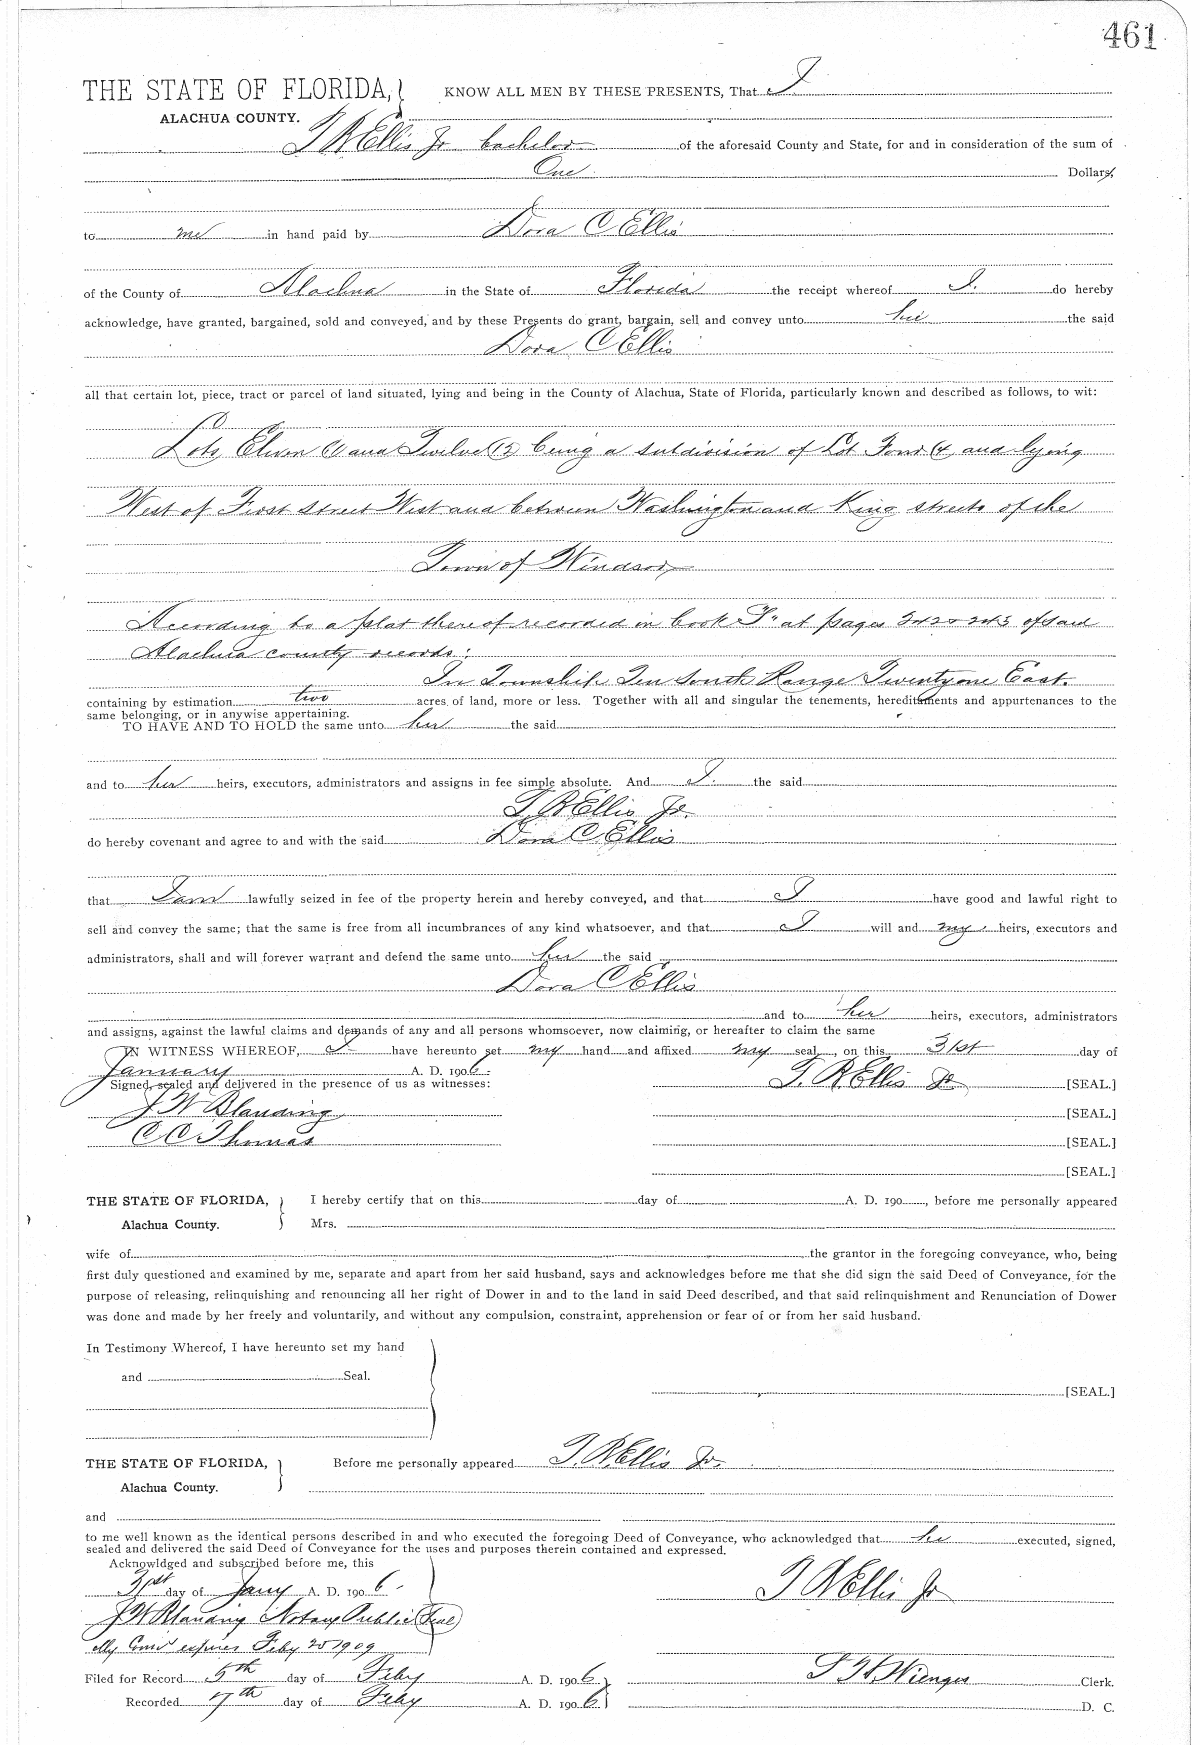 461
THE STATE OF FLORIDA, KNOW ALL MEN BY THESE PRESENTS, That I
ALACHUA COUNTY.
T R Ellis Jr bachelor of the aforesaid County and State, for and in consideration of the sum of
One Dollars,
to me in hand paid by Dora C Ellis
of the County of Alachua in the State of Florida the receipt whereof I do hereby
acknowledge, have granted, bargained, sold and conveyed, and by these Presents do grant, bargain, sell and convey unto her the said
Dora C Ellis
all that certain lot, piece, tract or parcel of land situated, lying and being in the County of Alachua, State of Florida, particularly known and described as follows, to wit:
Lots Eleven (11) and Twelve (12) being a subdivision of Lot Four (4) and lying
West of First Street West and between Washington and King streets of the
Town of Windsor
According to a plat thereof recorded in book at pages 342 & 343 of said
Alachua county records:
In Township Ten South Range Twenty one East.
containing by estimation two acres of land, more or less. Together with all and singular the tenements, hereditaments and appurtenances to the
same belonging, or in anywise appertaining.
TO HAVE AND TO HOLD the same unto her the said
and to her heirs, executors, administrators and assigns in fee simple absolute. And I the said
T. R Ellis Jr.
do hereby covenant and agree to and with the said Dora C Ellis
that I am lawfully seized in fee of the property herein and hereby conveyed, and that I have good and lawful right to
sell and convey the same; that the same is free from all incumbrances of any kind whatsoever, and that I will and my heirs, executors and
administrators, shall and will forever warrant and defend the same unto her the said
Dora C Ellis
and to her heirs, executors, administrators
and assigns, against the lawful claims and demands of any and all persons whomsoever, now claiming, or hereafter to claim the same
IN WITNESS WHEREOF, I have hereunto set my hand and affixed my seal, on this 31st day of
January A. D. 1906.
Signed, sealed and delivered in the presence of us as witnesses: T. R. Ellis Jr [SEAL.]
J W Blanding [SEAL.]
C C Thomas [SEAL.]
[SEAL.]
THE STATE OF FLORIDA, I hereby certify that on this day of A. D. 190 , before me personally appeared
Alachua County. Mrs.
wife of the grantor in the foregoing conveyance, who, being
first duly questioned and examined by me, separate and apart from her said husband, says and acknowledges before me that she did sign the said Deed of Conveyance, for the
purpose of releasing, relinquishing and renouncing all her right of Dower in and to the land in said Deed described, and that said relinquishment and Renunciation of Dower
was done and made by her freely and voluntarily, and without any compulsion, constraint, apprehension or fear of or from her said husband.
In Testimony Whereof, I have hereunto set my hand
and Seal.
[SEAL.]
THE STATE OF FLORIDA, Before me personally appeared T. R. Ellis Jr.
Alachua County.
and
to me well known as the identical persons described in and who executed the foregoing Deed of Conveyance, who acknowledged that he executed, signed,
sealed and delivered the said Deed of Conveyance for the uses and purposes therein contained and expressed.
Acknowldged and subscribed before me, this
31st day of Jany A. D. 1906. T R Ellis Jr
J W Blanding Notary Public (Seal)
My Comn expires Feby 25 1909
Filed for Record 5th day of Feby A. D. 1906 S H Wienges Clerk.
Recorded 7th day of Feby A. D. 1906 D. C.